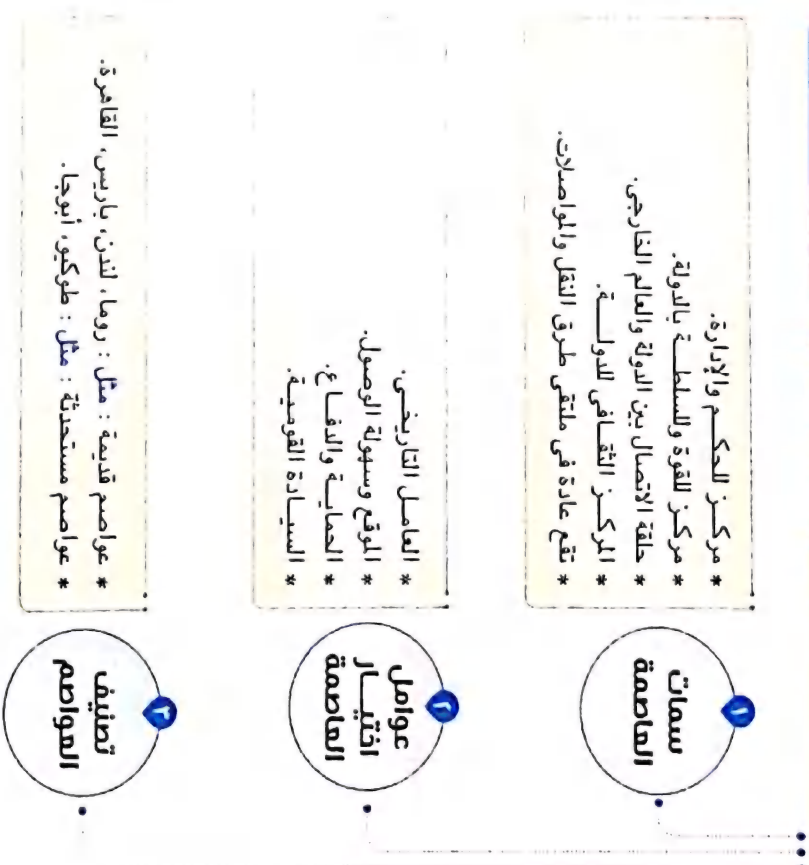 ١
سمات
العاصمة
* مركز للحكم والإدارة.
* مركز للقوة وللسلطة بالدولة.
* حلقة الاتصال بين الدولة والعالم الخارجى.
* المركز الثقافى للدولة.
* تقع عادة فى ملتقى طرق النقل والمواصلات.
٢
عوامل
اختيار
العاصمة
* العامل التاريخى.
* الموقع وسهولة الوصول.
* الحماية والدفاع.
* السيادة القومية.
٣
تصنيف
العواصم
* عواصم قديمة : مثل : روما، لندن، باريس، القاهرة.
* عواصم مستحدثة : مثل : طوكيو، أبوجا.